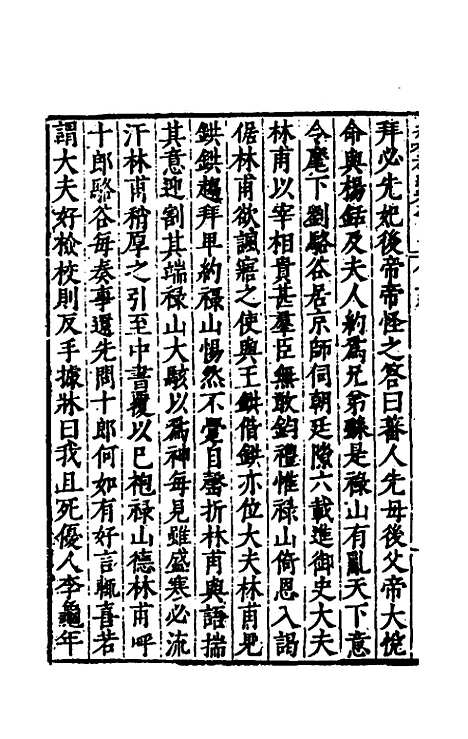 拜必先妃後帝帝怪之答曰蕃人先母後父帝大悅
命與楊銛及夫人約為兄弟繇是祿山有亂天下意
令麾下劉駱谷居京師伺朝廷隙六載進御史大夫
林甫以宰相貴甚羣臣無敢鈞禮惟祿山倚恩入謁
倨林甫欲諷寤之使與王鉷偕鉷亦位大夫林甫見
鉷鉷趨拜卑約祿山惕然不覺自罄折林甫與語揣
其意迎剖其端祿山大駭以為神每見雖盛寒必流
汗林甫稍厚之引至中書覆以己袍祿山德林甫呼
十郎駱谷每奏事還先問十郎何如有好言輒喜若
謂大夫好檢校則反手據牀曰我且死優人李龜年